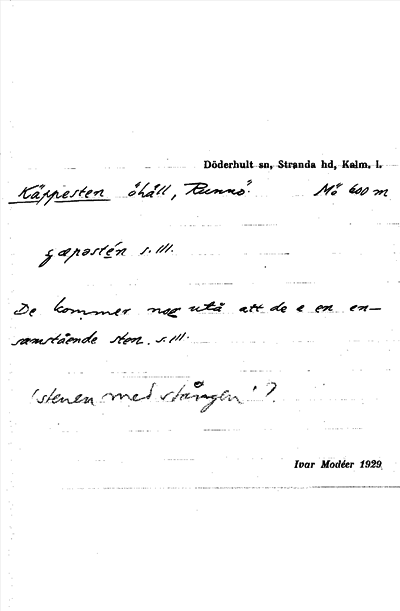 Döderhult sn, Stranda hd, Kalm. l.
Käppesten öhåll, Runnö. Mö 600 m
çæpəstén s. III.
De kommer nog utå att de e en en-
samstående sten. s. III.
'stenen med stången'?
Ivar Modéer 1929